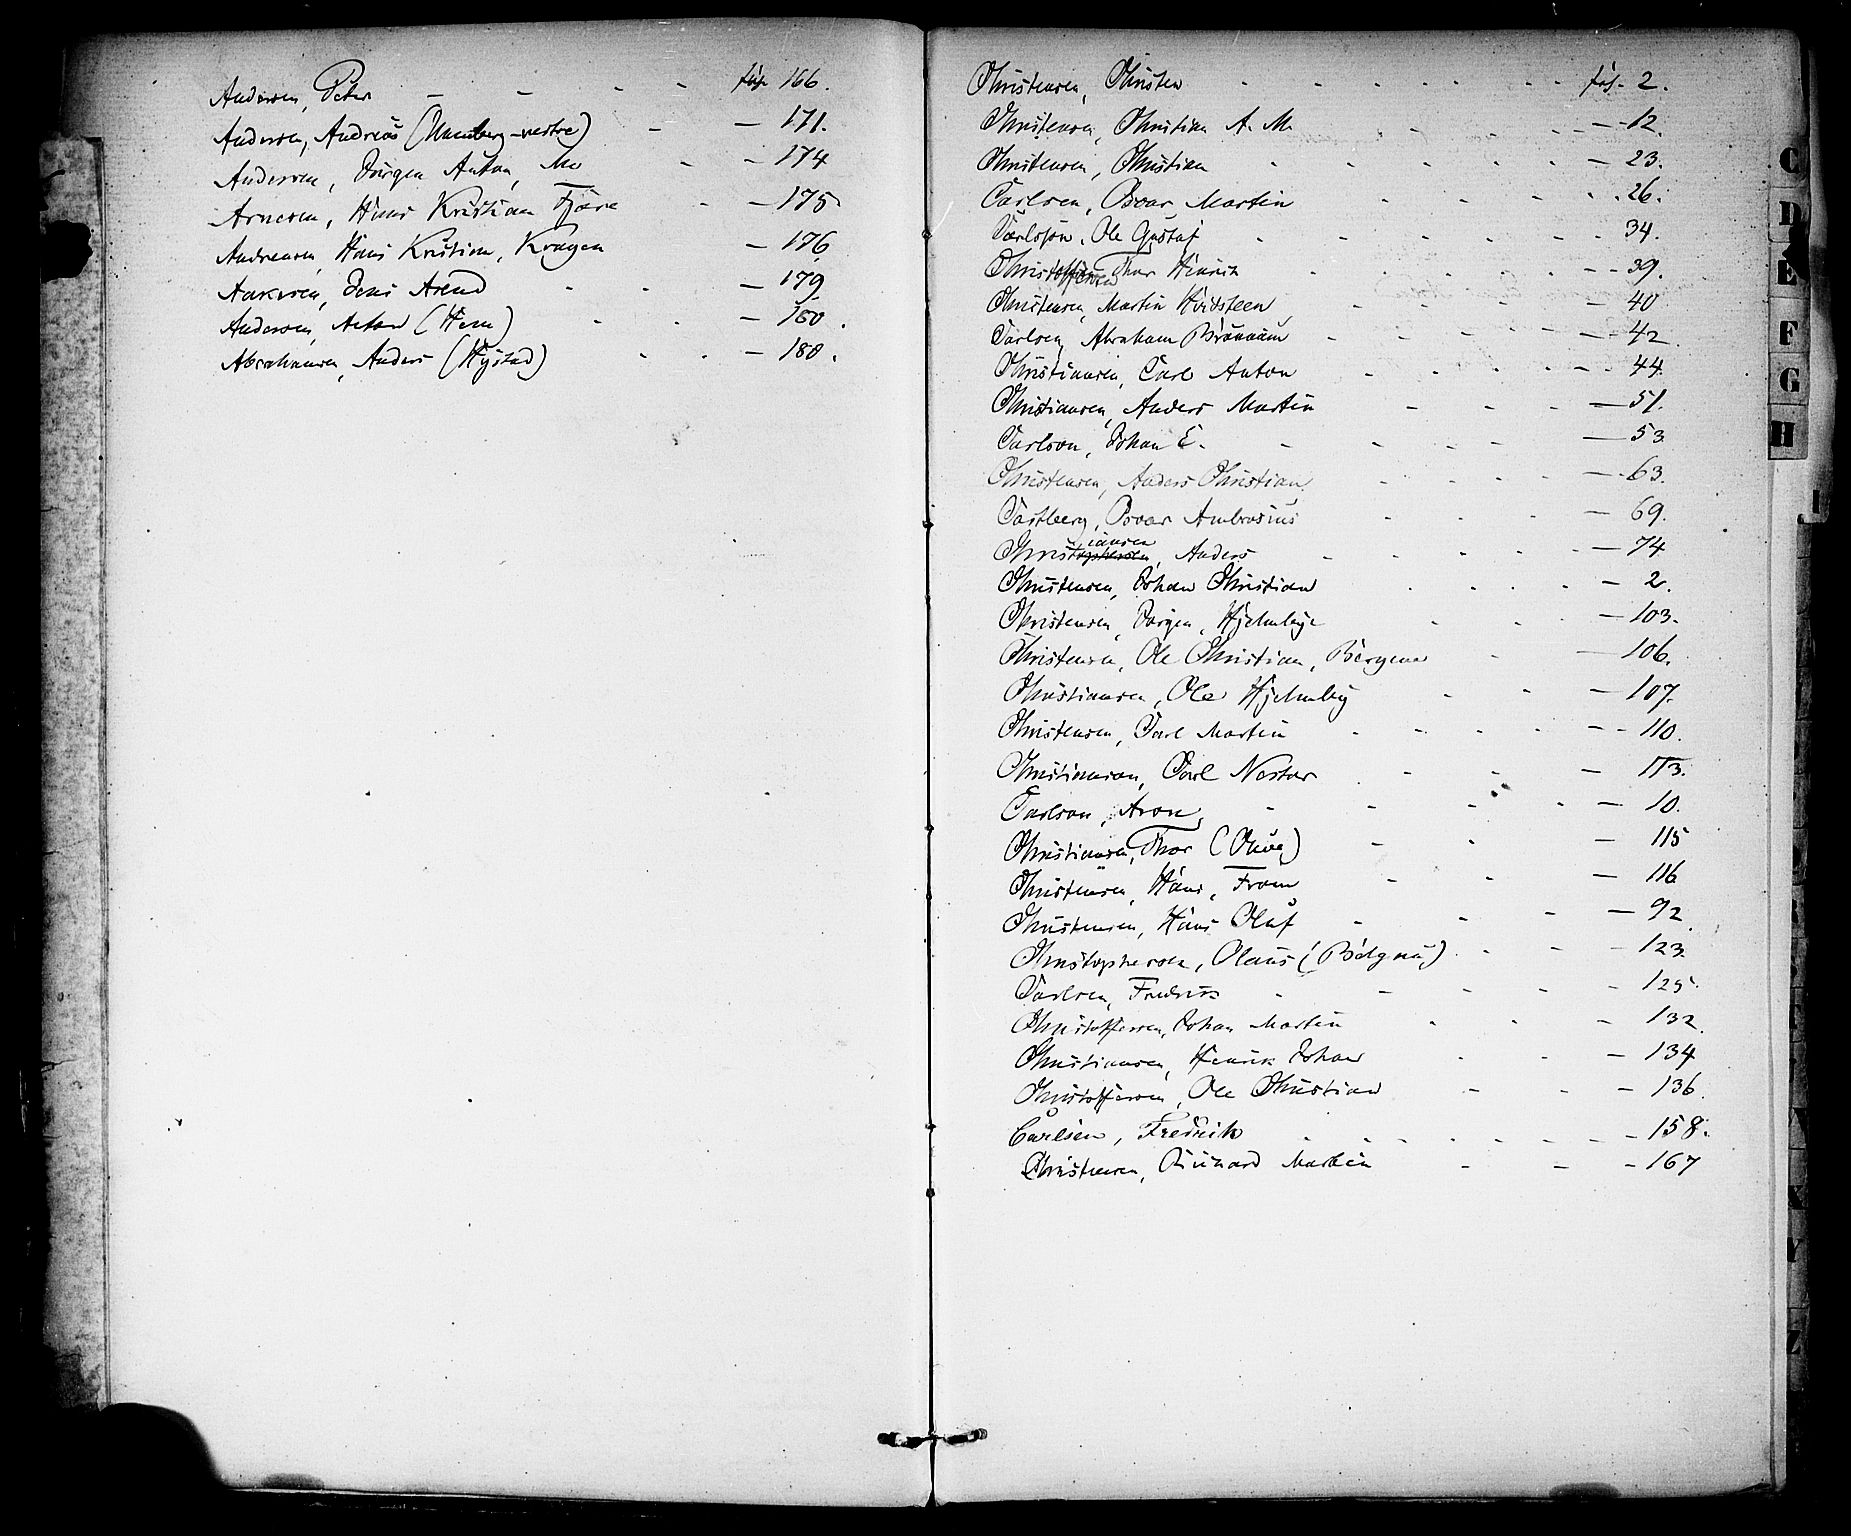 Andersen, Peter - - - - fol. 166.
Andersen, Andreas (Unneberg-vestre) - - 171.
Andersen, Jörgen Anton, Mo - - - 174
Arnesen, Hans Kristian Fjære - - 175
Andresen, Hans Kristian, Kragen - 176
Aakesen, Jens Arend - - - 179
Andersen, Anton (Hem) - - - 180.
Abrahamsen, Anders (Hystad) - - - 180.
Christensen, Christen - - - - - fol. 2.
Christensen, Christian A. M. - - - 12.
Christensen, Christian - - - - - 23.
Carlsen, Oscar Martin - - - - 26.
Carlsson, Ole Gustaf - - - - - 34.
Christoffersen Thor Hinrik - - - - 39.
Christensen, Martin Hvidsteen - - - 40
Carlsen, Abraham - - - - 42.
Christiansen, Carl Anton - - - - 44.
Christiansen, Anders Martin - - - 51.
Carlson, Johan E. - - - - 53
Christensen, Anders Christian - - - 63.
Castberg, Oscar Ambrosius - - - 69.
Christophersen iansen, Anders - - - - 74
Christensen, Johan Christian - - - 2.
Christensen, Jörgen, Hjelmbye - - - 103.
Christensen, Ole Christian, Bergene - - 106.
Christiansen, Ole Hjelmby - - - 107.
Christensen, Carl Martin - - - - 110.
Christiansen, Carl Nestor - - - 113.
Carlson, Aron, - - - - 10.
Christiansen, Thor - - - 115
Christensen, Hans, From - - - 116
Christensen, Hans Oluf - - - 92.
Christophersen, Olaus - - - 123.
Carlsen, Fredrik - - - - 125.
Christoffersen, Johan Martin - - - 132.
Christiansen, Henrik Johan - - - 134
Christoffersen, Ole Christian - - - 136.
Carlsen, Fredrik - - - - - 158.
Christensen, Richard Martin - - - 167
C
D
E
F
G
H
I
X
Y
Z